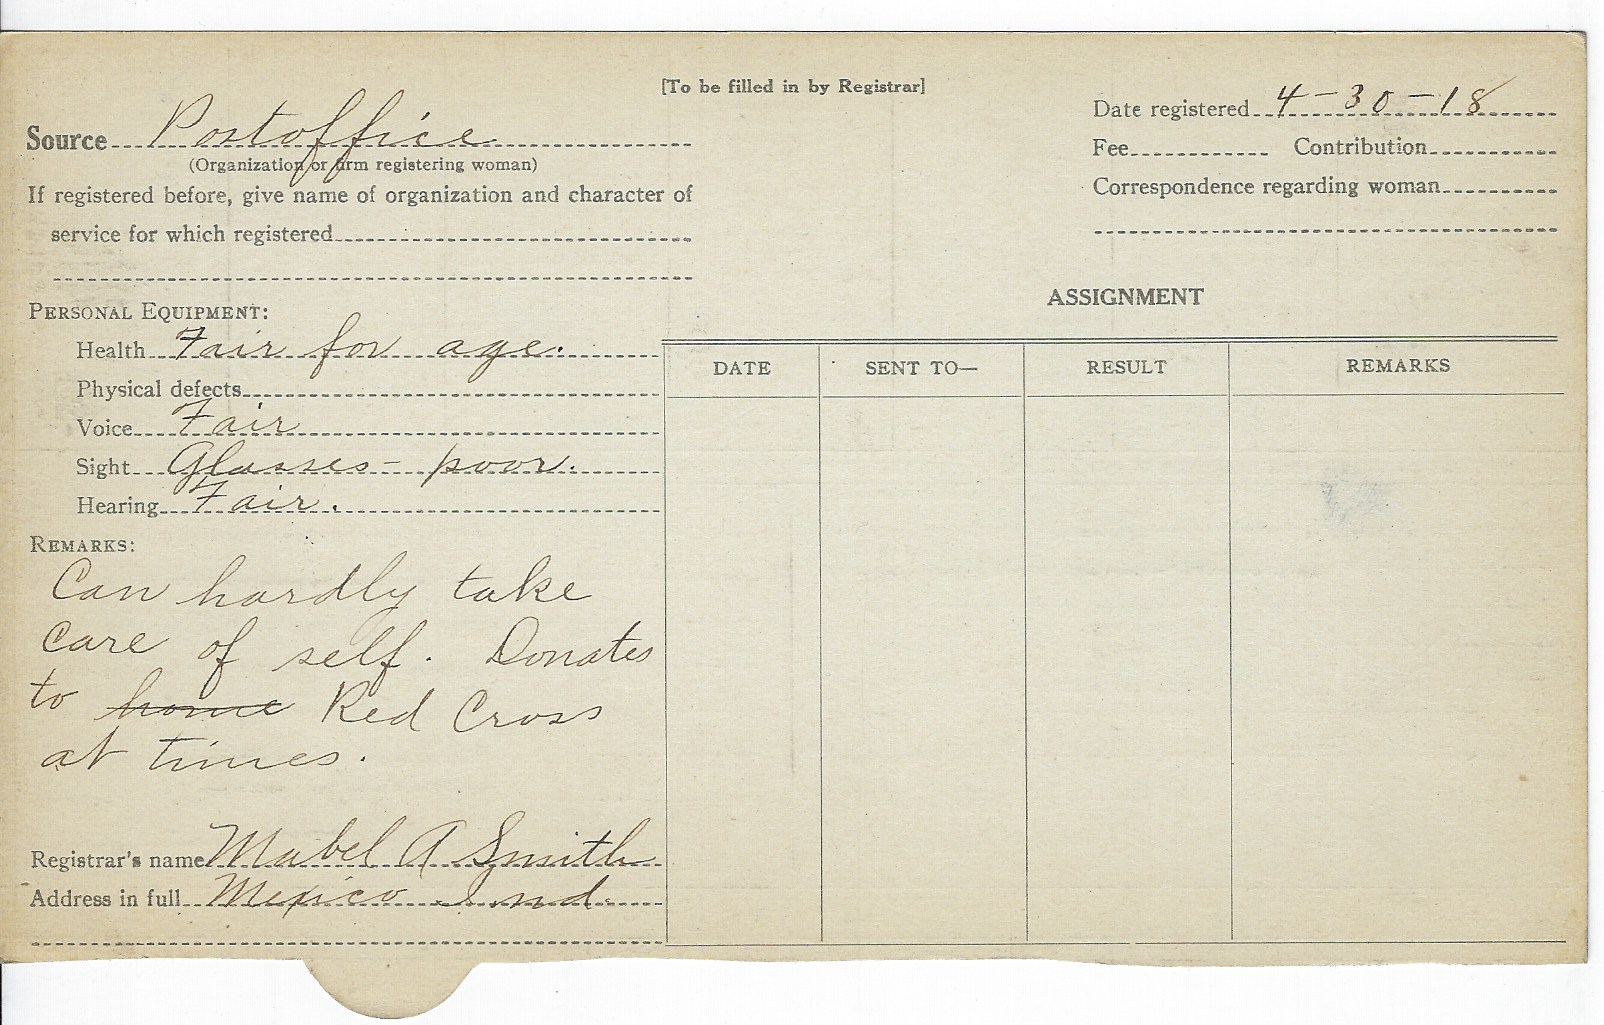 [To be filled in by Registrar]
Source Postoffice
(Organization or firm registering woman)
If registered before, give name of organization and character of
service for which registered
Date registered 4-30-18
Fee Contribution
Correspondence regarding woman
PERSONAL EQUIPMENT:
Health Fair for age.
Physical defects
Voice Fair
Sight Glasses - poor.
Hearing Fair.
REMARKS:
Can hardly take
care of self. Donates
to home Red Cross
at times.
Registrar's name Mabel A Smith
Address in full Mexico Ind.
ASSIGNMENT
DATE SENT TO— RESULT REMARKS